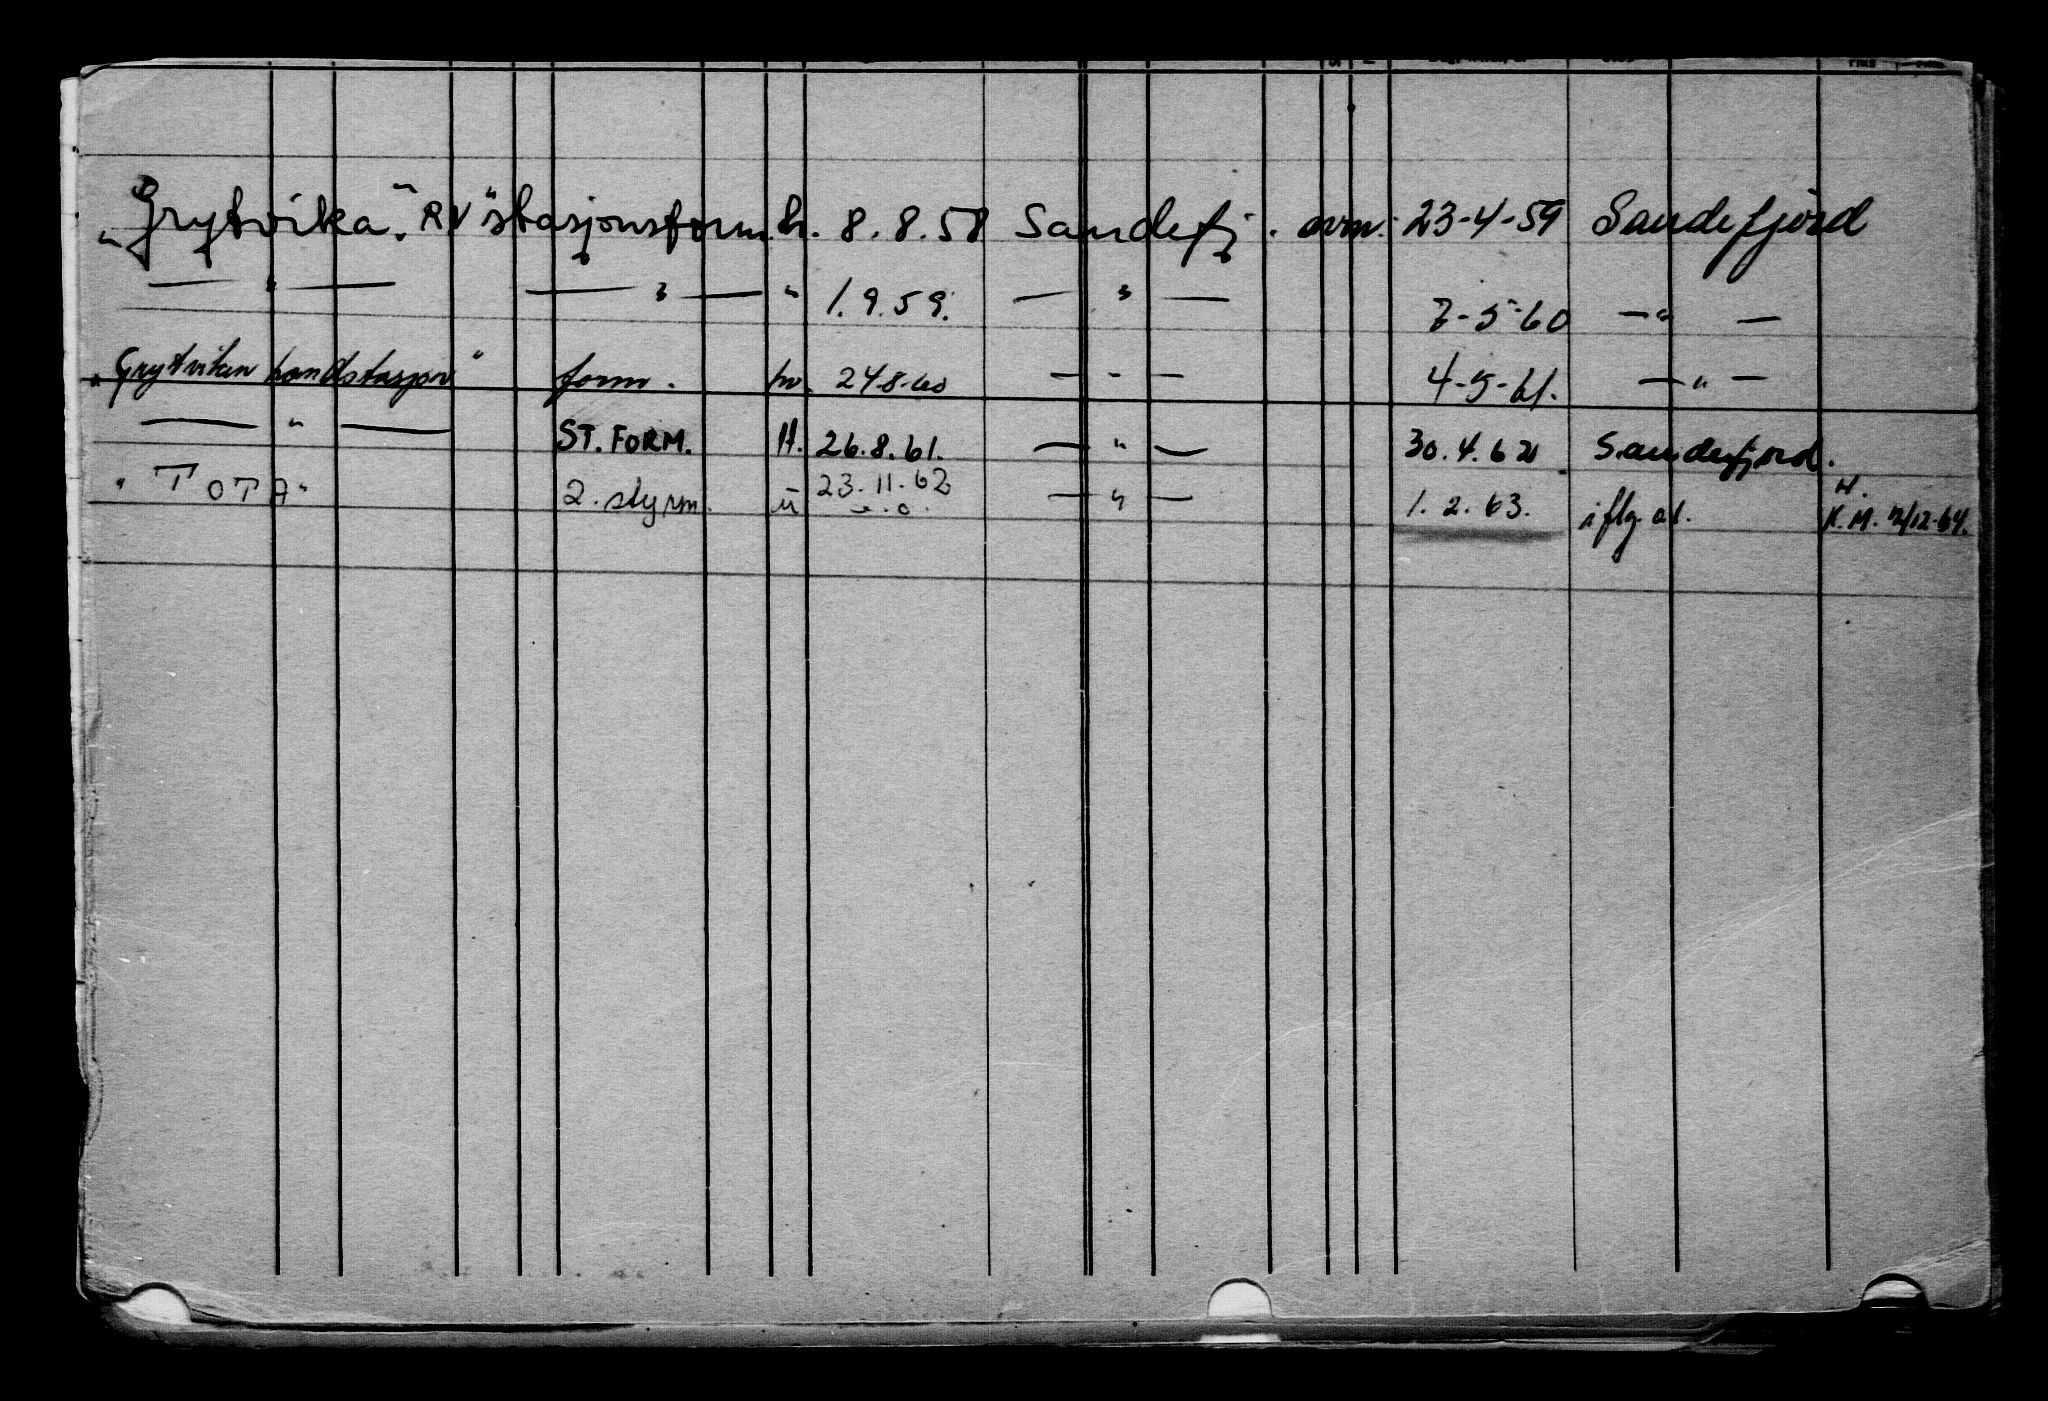 "Grytvika." RV "stasjonsform. h. 8.8.58 Sandefj. avm. 23-4-59 Sandefjord
— " — — " — " 1.9.59. — " — 7-5-60 — " —
"Grytviken landstasjon" form. h. 24.8.60 — " — 4-5-61. — " —
— " — ST. FORM. H. 26.8.61. — " — 30.4.62 Sandefjord.
"TOTA" 2. styrm. u 23.11.62 — " — 1.2.63. iflg. H. K.M. 2/12-64.